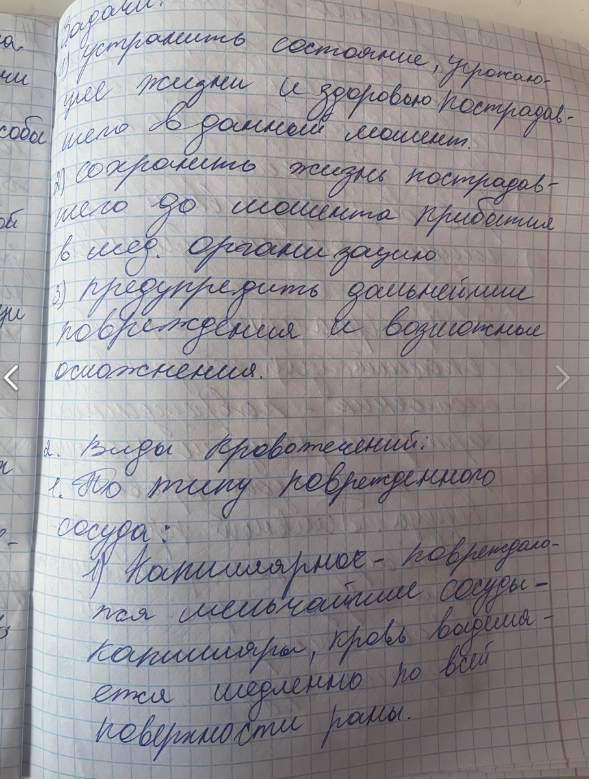 Задачи:
1) устранить состояние, угрожаю-
щее жизни и здоровью пострадав-
шего в данный момент.
2) сохранить жизнь пострадав-
шего до момента прибытия
в мед. организацию
3) предупредить дальнейшие
повреждения и возможные
осложнения.
2. Виды кровотечений:
1. По типу поврежденного
сосуда:
1) Капиллярное - повреждаю-
тся мельчайшие сосуды -
капилляры, кровь выделя-
ется медленно по всей
поверхности раны.